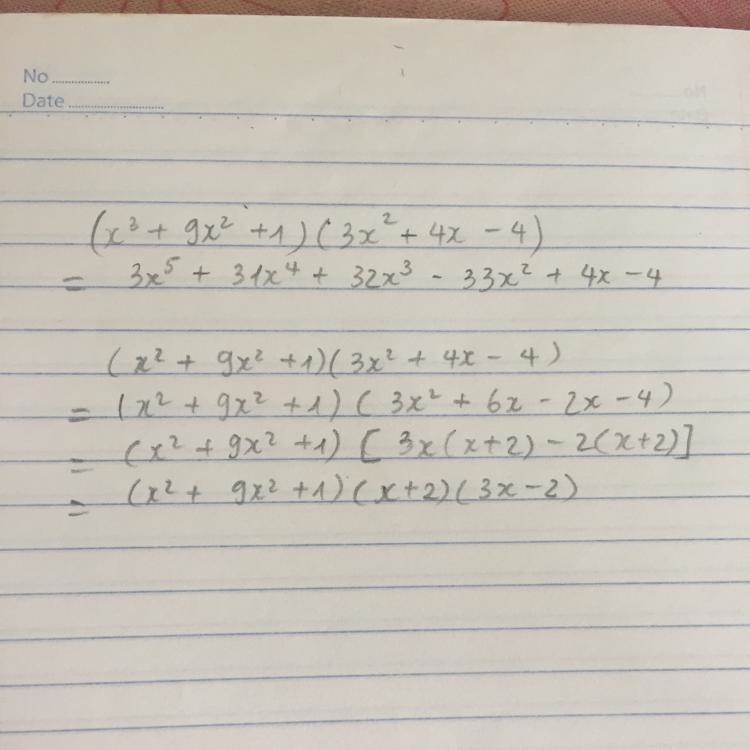 No
Date
(x³ + 9x² + 1)(3x² + 4x - 4)
= 3x⁵ + 31x⁴ + 32x³ - 33x² + 4x - 4
(x² + 9x² + 1)(3x² + 4x - 4)
= (x² + 9x² + 1)(3x² + 6x - 2x - 4)
= (x² + 9x² + 1)[3x(x+2) - 2(x+2)]
= (x² + 9x² + 1)(x+2)(3x-2)